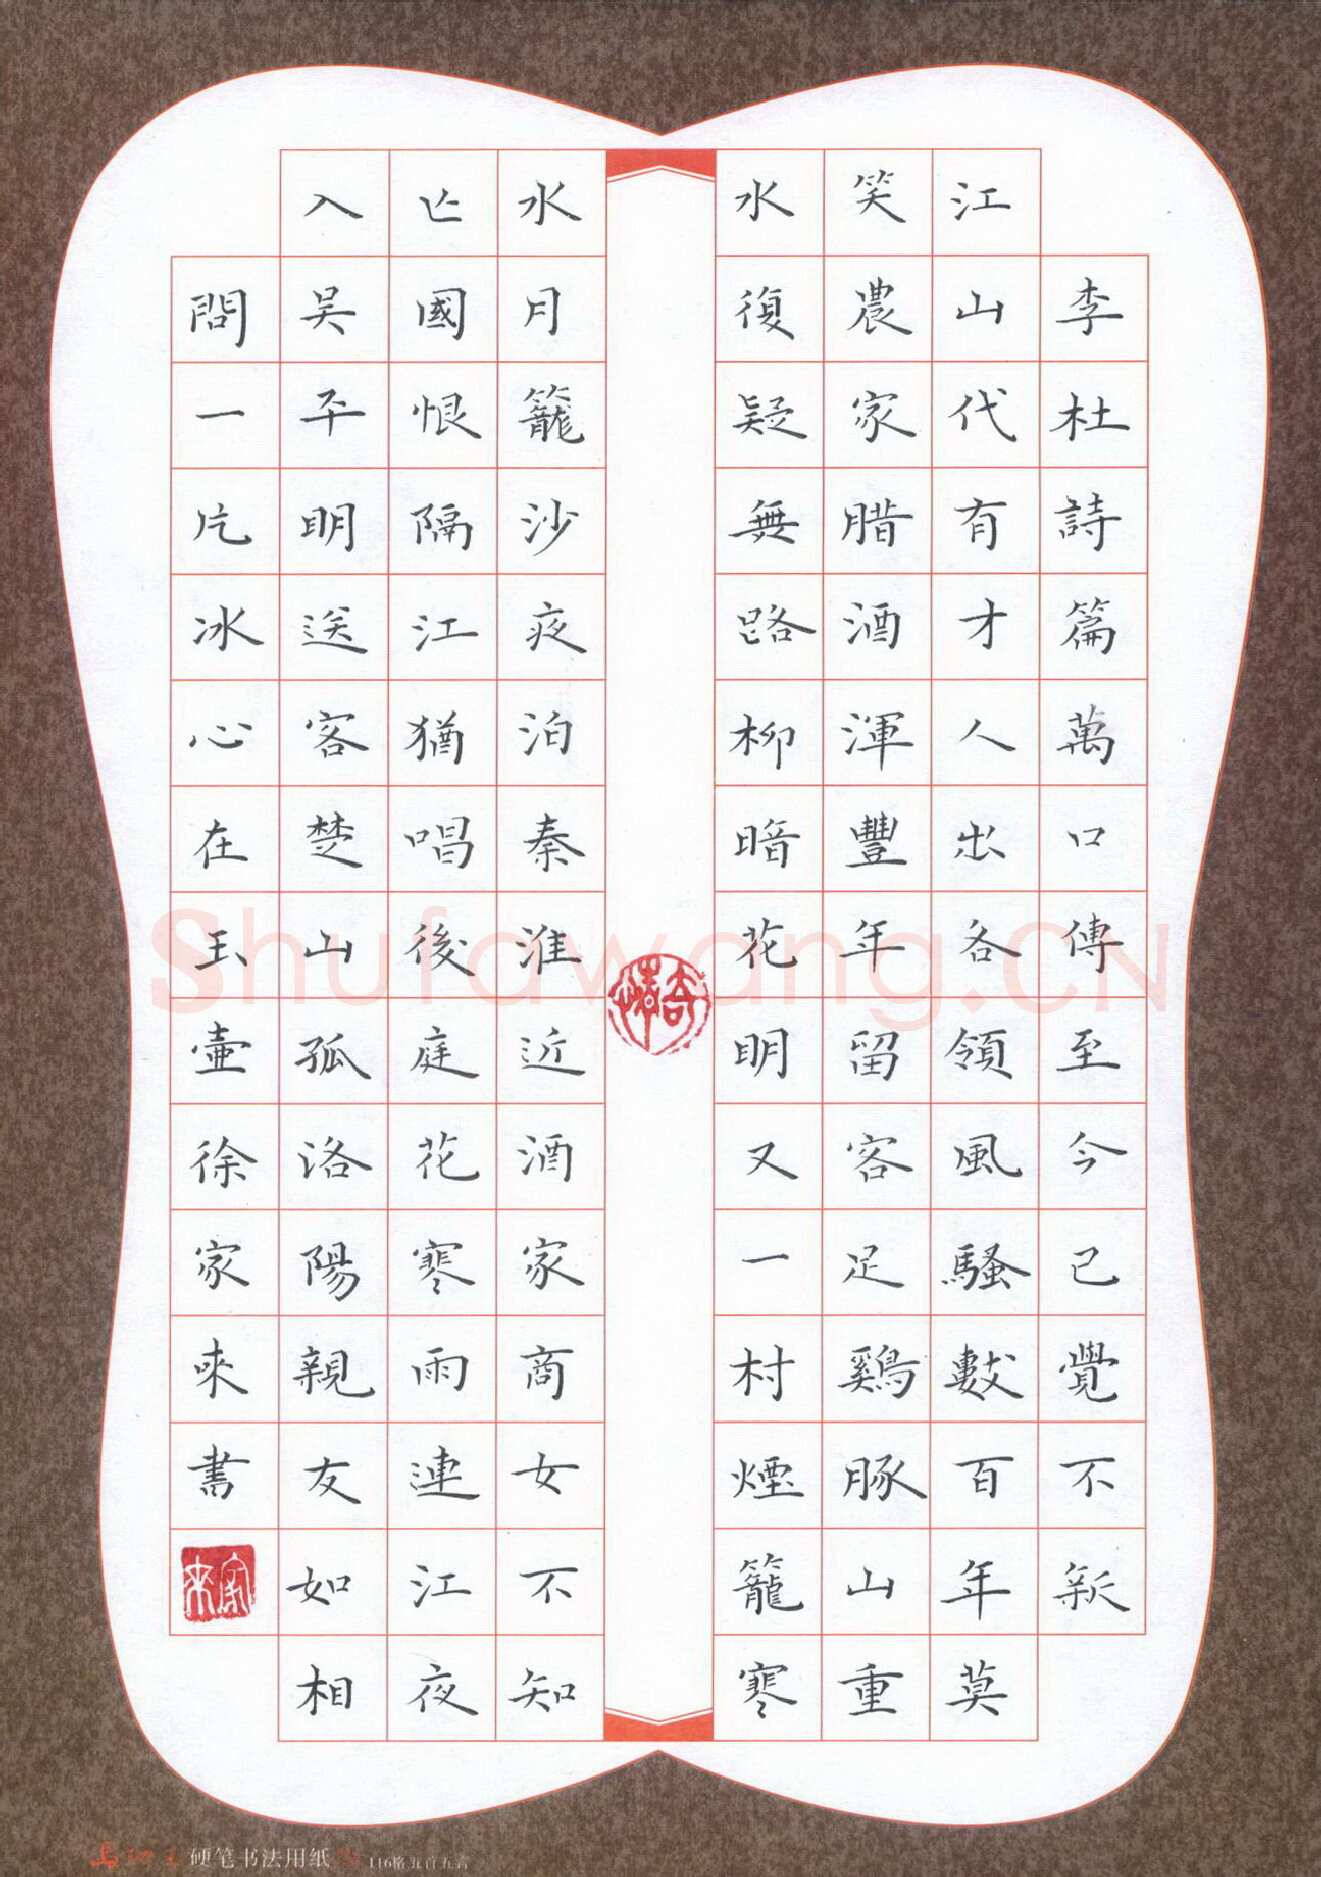 李杜詩篇萬口傳至今已覺不新
江山代有才人出各領風騷數百年莫
笑農家腊酒渾豐年留客足鷄豚山重
水復疑無路柳暗花明又一村煙籠寒
水月籠沙夜泊秦淮近酒家商女不知
亡國恨隔江猶唱後庭花寒雨連江夜
入吳平明送客楚山孤洛陽親友如相
問一片冰心在玉壺徐家來書
家來
Shufawang.CN
硬笔书法用纸
116格五百五言